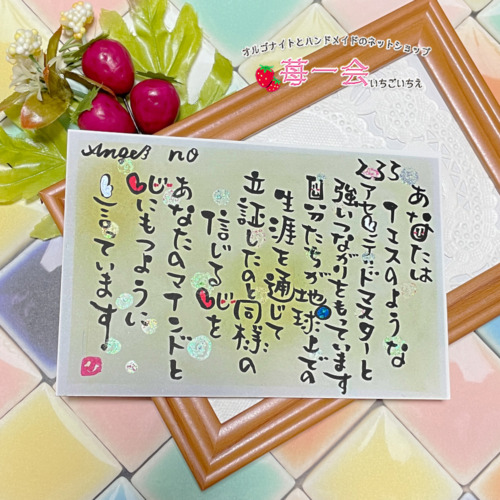 オルゴナイトとハンドメイドのネットショップ
苺一会いちごいちえ
Angel no
233
あなたは
イエスのような
アセンデッドマスターと
強いつながりをもっています
自分たちが地球上での
生涯を通じて
立証したのと同様の
信じる心を
あなたのマインドと
心にもつように
言っています。